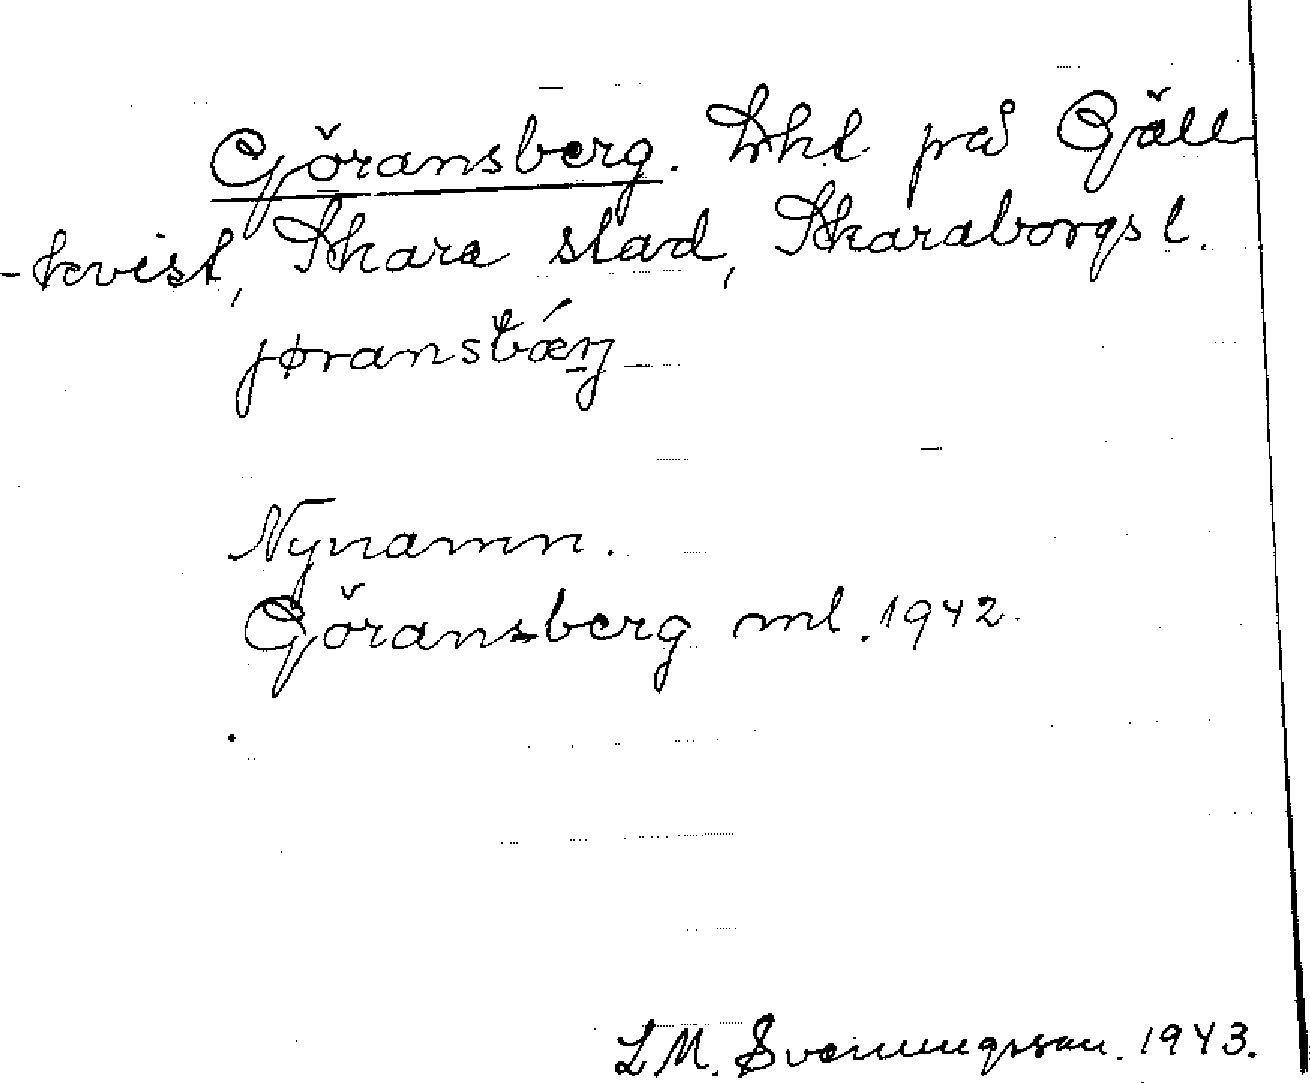 Göransberg. Lht på Gäll-
-kvist, Skara stad, Skaraborgs l.
jøransbǽrj
Nynamn.
Göransberg ml. 1942.
L M. Svenungsson. 1943.